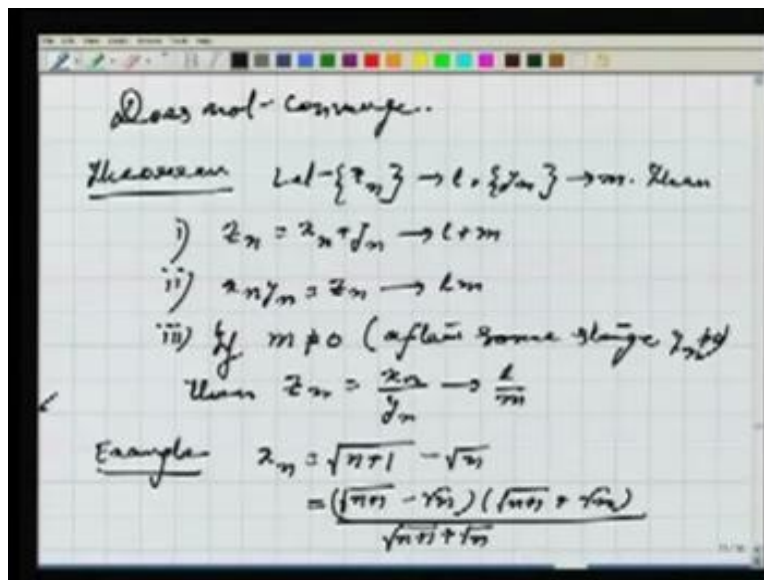 Does not converge.
Theorem Let {x_n} → l, {y_n} → m. Then
i) z_n = x_n + y_n → l + m
ii) x_n y_n = z_n → l m
iii) If m ≠ 0 (after some stage y_n ≠ 0)
Then z_n = x_n / y_n → l / m
Example x_n = √(n+1) − √n
= (√(n+1) − √n)(√(n+1) + √n) / (√(n+1) + √n)